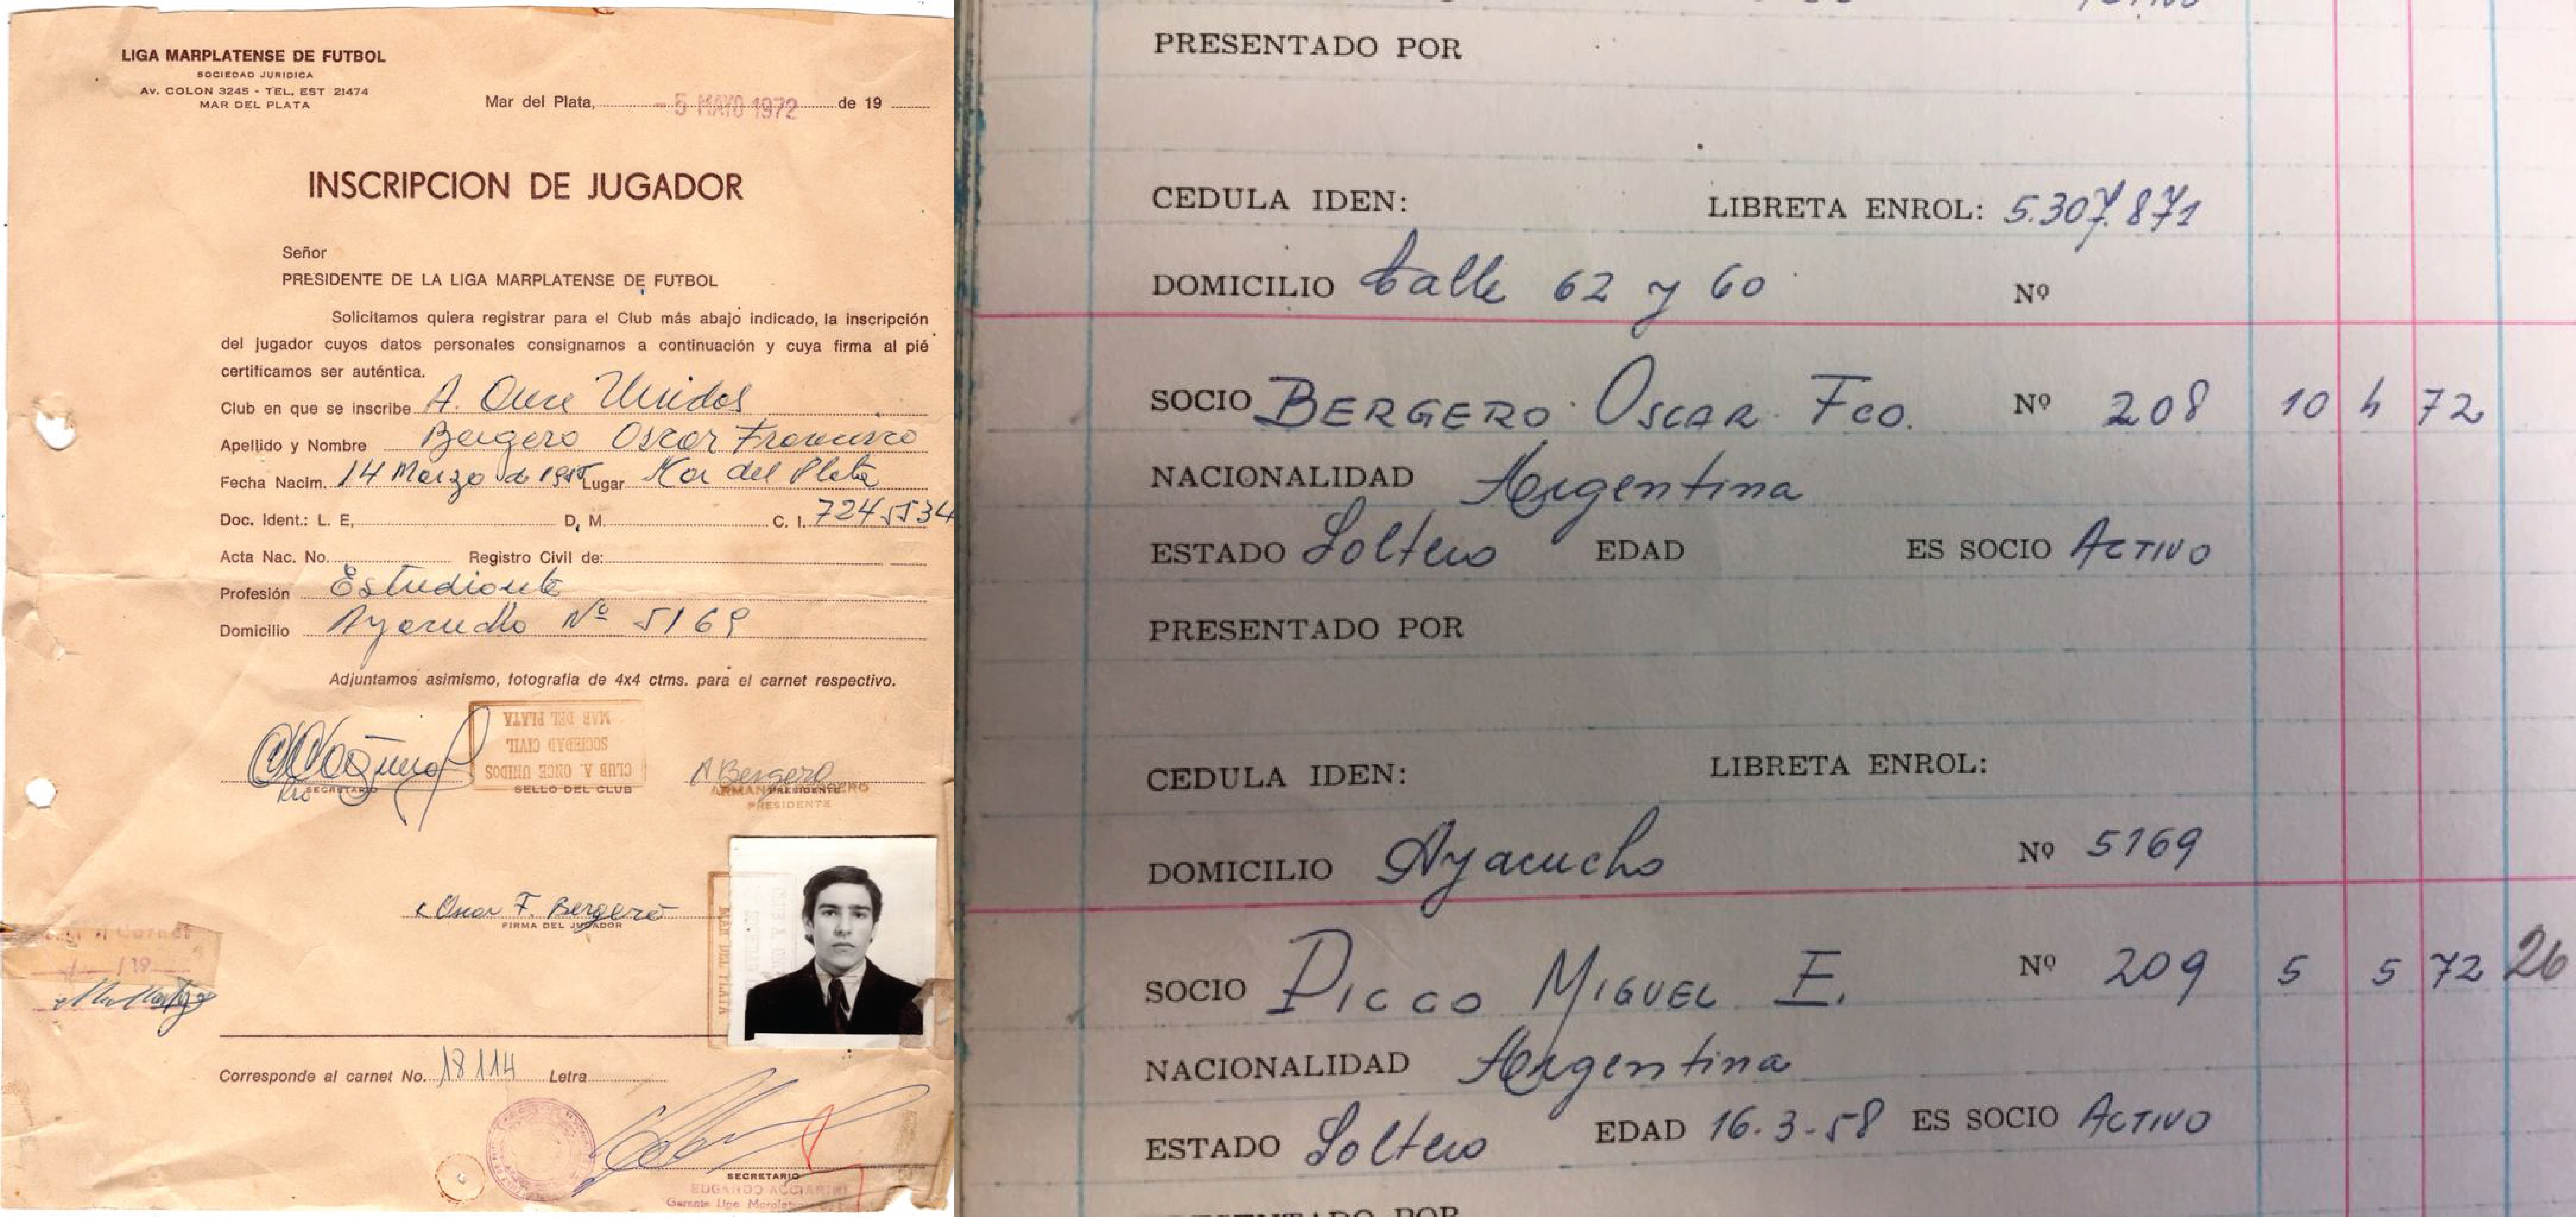 LIGA MARPLATENSE DE FUTBOL
SOCIEDAD JURIDICA
AV. COLON 3245 - TEL. EST 21474
MAR DEL PLATA
Mar del Plata, - 5 MAYO 1972 de 19
INSCRIPCION DE JUGADOR
Señor
PRESIDENTE DE LA LIGA MARPLATENSE DE FUTBOL
Solicitamos quiera registrar para el Club más abajo indicado, la inscripción
del jugador cuyos datos personales consignamos a continuación y cuya firma al pié
certificamos ser auténtica.
Club en que se inscribe A. Once Unidos
Apellido y Nombre Bergero Oscar Francisco
Fecha Nacim. 14 Marzo de Lugar Mar del Plata
Doc. Ident.: L. E. D. M. C. I. 7245534
Acta Nac. No. Registro Civil de:
Profesión Estudiante
Domicilio Ayacucho Nº 5169
Adjuntamos asimismo, fotografia de 4x4 ctms. para el carnet respectivo.
CLUB A. ONCE UNIDOS
SOCIEDAD CIVIL
MAR DEL PLATA
SECRETARIO
SELLO DEL CLUB
A Bergero
PRESIDENTE
PRESIDENTE
Oscar F. Bergero
FIRMA DEL JUGADOR
MAR DEL PLATA
Carnet
Corresponde al carnet No. 18114 Letra
SECRETARIO
EDGARDO ACCIARINI
Gerente Liga
PRESENTADO POR
CEDULA IDEN: LIBRETA ENROL: 5.307.871
DOMICILIO Calle 62 y 60 Nº
SOCIO BERGERO OSCAR Fco. Nº 208 10 4 72
NACIONALIDAD Argentina
ESTADO Soltero EDAD ES SOCIO ACTIVO
PRESENTADO POR
CEDULA IDEN: LIBRETA ENROL:
DOMICILIO Ayacucho Nº 5169
SOCIO PICCO MIGUEL E. Nº 209 5 5 72 26
NACIONALIDAD Argentina
ESTADO Soltero EDAD 16-3-58 ES SOCIO ACTIVO
PRESENTADO POR